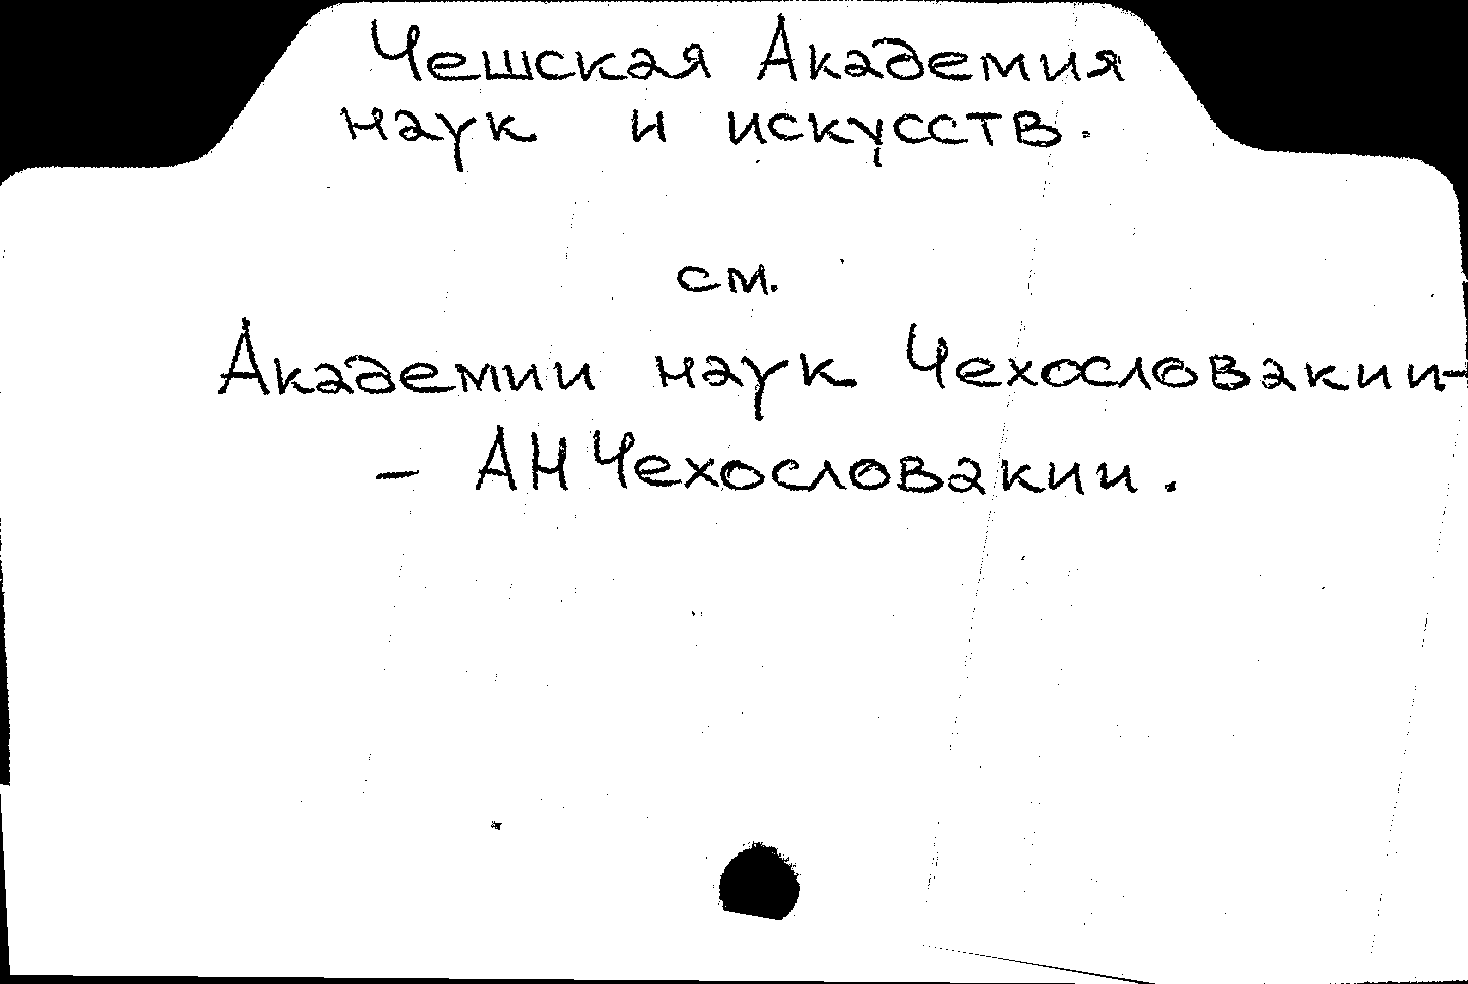 Чешская Академия
наук и искусств.
см.
Академии наук Чехословакии-
- АН Чехословакии.